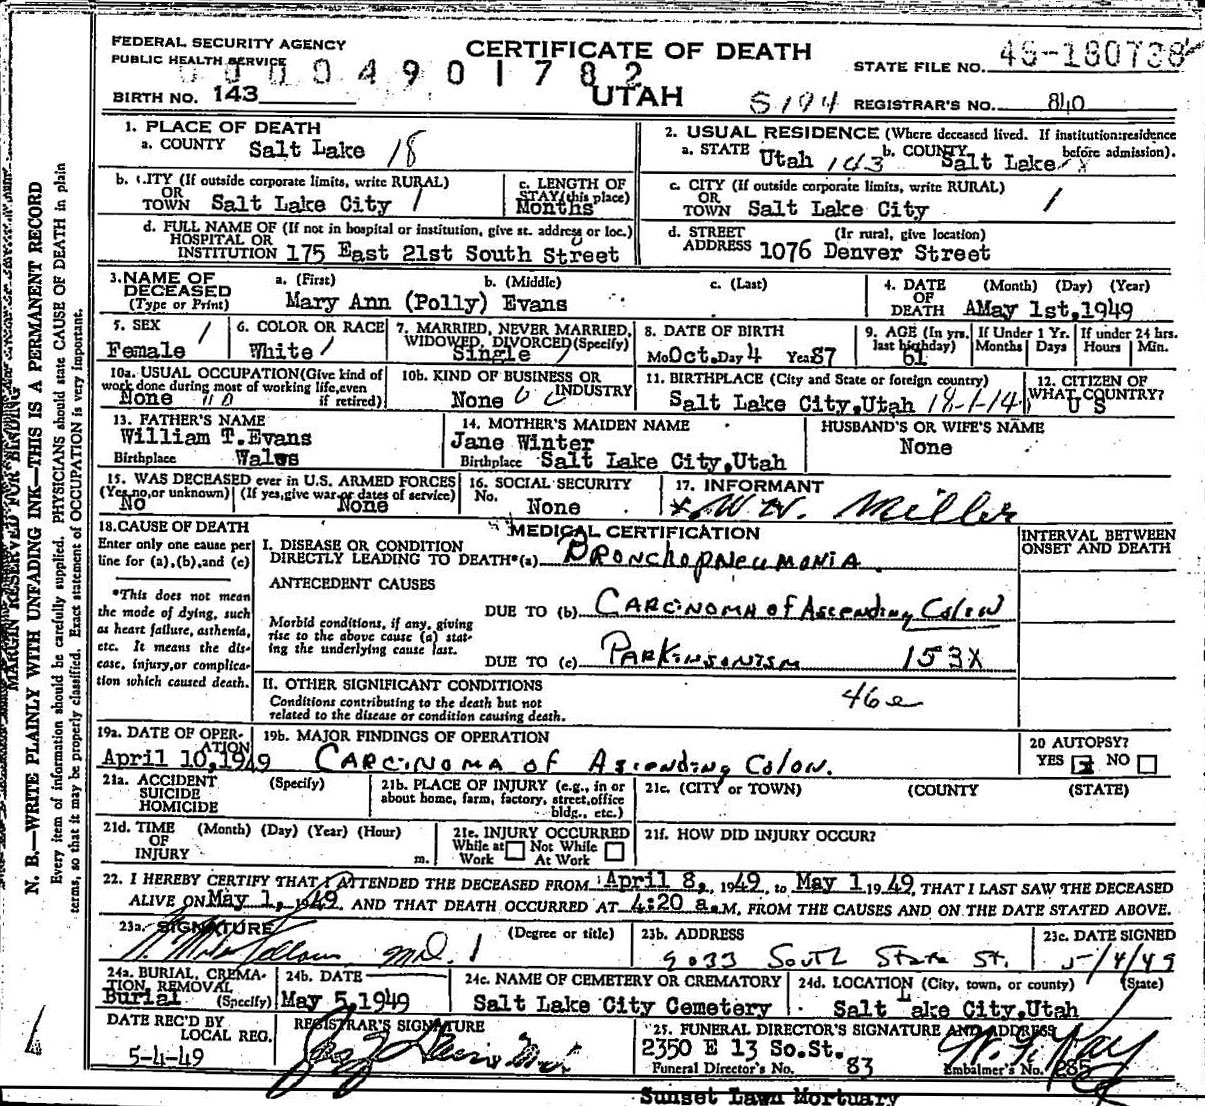 FEDERAL SECURITY AGENCY
PUBLIC HEALTH SERVICE
CERTIFICATE OF DEATH
UTAH
STATE FILE NO. 49-180738
000049017 82
BIRTH NO. 143
S194 REGISTRAR'S NO. 840
1. PLACE OF DEATH
a. COUNTY Salt Lake 18
2. USUAL RESIDENCE (Where deceased lived. If institution:residence before admission).
a. STATE Utah 143 b. COUNTY Salt Lake
b. CITY (If outside corporate limits, write RURAL)
OR
TOWN Salt Lake City 1
c. LENGTH OF
STAY (this place)
Months
c. CITY (If outside corporate limits, write RURAL)
OR
TOWN Salt Lake City 1
d. FULL NAME OF (If not in hospital or institution, give st. address or loc.)
HOSPITAL OR
INSTITUTION 175 East 21st South Street
d. STREET (If rural, give location)
ADDRESS 1076 Denver Street
3. NAME OF
DECEASED
(Type or Print)
a. (First) b. (Middle) c. (Last)
Mary Ann (Polly) Evans
4. DATE (Month) (Day) (Year)
OF
DEATH AMay 1st,1949
5. SEX
Female
6. COLOR OR RACE
White
7. MARRIED, NEVER MARRIED,
WIDOWED, DIVORCED (Specify)
Single
8. DATE OF BIRTH
Mo Oct. Day 4 Year 87
9. AGE (In yrs.
last birthday)
61
If Under 1 Yr.
Months Days
If under 24 hrs.
Hours Min.
10a. USUAL OCCUPATION (Give kind of
work done during most of working life, even
if retired)
None
10b. KIND OF BUSINESS OR
INDUSTRY
None
11. BIRTHPLACE (City and State or foreign country)
Salt Lake City,Utah 18-1-14
12. CITIZEN OF
WHAT COUNTRY?
U S
13. FATHER'S NAME
William T.Evans
Birthplace Wales
14. MOTHER'S MAIDEN NAME
Jane Winter
Birthplace Salt Lake City,Utah
HUSBAND'S OR WIFE'S NAME
None
15. WAS DECEASED ever in U.S. ARMED FORCES
(Yes,no,or unknown) (If yes,give war or dates of service)
No None
16. SOCIAL SECURITY
No.
None
17. INFORMANT
W. Miller
18. CAUSE OF DEATH
Enter only one cause per
line for (a),(b),and (c)
*This does not mean
the mode of dying, such
as heart failure, asthenia,
etc. It means the dis-
ease, injury,or complica-
tion which caused death.
MEDICAL CERTIFICATION
INTERVAL BETWEEN
ONSET AND DEATH
I. DISEASE OR CONDITION
DIRECTLY LEADING TO DEATH*(a) BRONCHOPNEUMONIA
ANTECEDENT CAUSES
Morbid conditions, if any, giving
rise to the above cause (a) stat-
ing the underlying cause last.
DUE TO (b) CARCINOMA of Ascending Colon
DUE TO (c) PARKINSONISM 153X
II. OTHER SIGNIFICANT CONDITIONS
Conditions contributing to the death but not
related to the disease or condition causing death.
46e
19a. DATE OF OPER-
ATION
April 10,1949
19b. MAJOR FINDINGS OF OPERATION
CARCINOMA of Ascending Colon.
20 AUTOPSY?
YES x NO
21a. ACCIDENT
SUICIDE
HOMICIDE
(Specify)
21b. PLACE OF INJURY (e.g., in or
about home, farm, factory, street,office
bldg., etc.)
21c. (CITY or TOWN) (COUNTY) (STATE)
21d. TIME
OF
INJURY
(Month) (Day) (Year) (Hour)
m.
21e. INJURY OCCURRED
While at Work Not While At Work
21f. HOW DID INJURY OCCUR?
22. I HEREBY CERTIFY THAT I ATTENDED THE DECEASED FROM April 8, 1949, to May 1 1949, THAT I LAST SAW THE DECEASED
ALIVE ON May 1, 1949, AND THAT DEATH OCCURRED AT 4:20 a.M. FROM THE CAUSES AND ON THE DATE STATED ABOVE.
23a. SIGNATURE (Degree or title)
M.D.
23b. ADDRESS
2033 South State St.
23c. DATE SIGNED
5/4/49
24a. BURIAL, CREMA-
TION, REMOVAL
(Specify)
Burial
24b. DATE
May 5,1949
24c. NAME OF CEMETERY OR CREMATORY
Salt Lake City Cemetery
24d. LOCATION (City, town, or county) (State)
Salt Lake City,Utah
DATE REC'D BY
LOCAL REG.
5-4-49
REGISTRAR'S SIGNATURE
25. FUNERAL DIRECTOR'S SIGNATURE AND ADDRESS
2350 E 13 So.St.
Funeral Director's No. 83
Embalmer's No. 285
Sunset Lawn Mortuary
MARGIN RESERVED FOR BINDING
N. B.—WRITE PLAINLY WITH UNFADING INK—THIS IS A PERMANENT RECORD
Every item of information should be carefully supplied. PHYSICIANS should state CAUSE OF DEATH in plain
terms, so that it may be properly classified. Exact statement of OCCUPATION is very important.